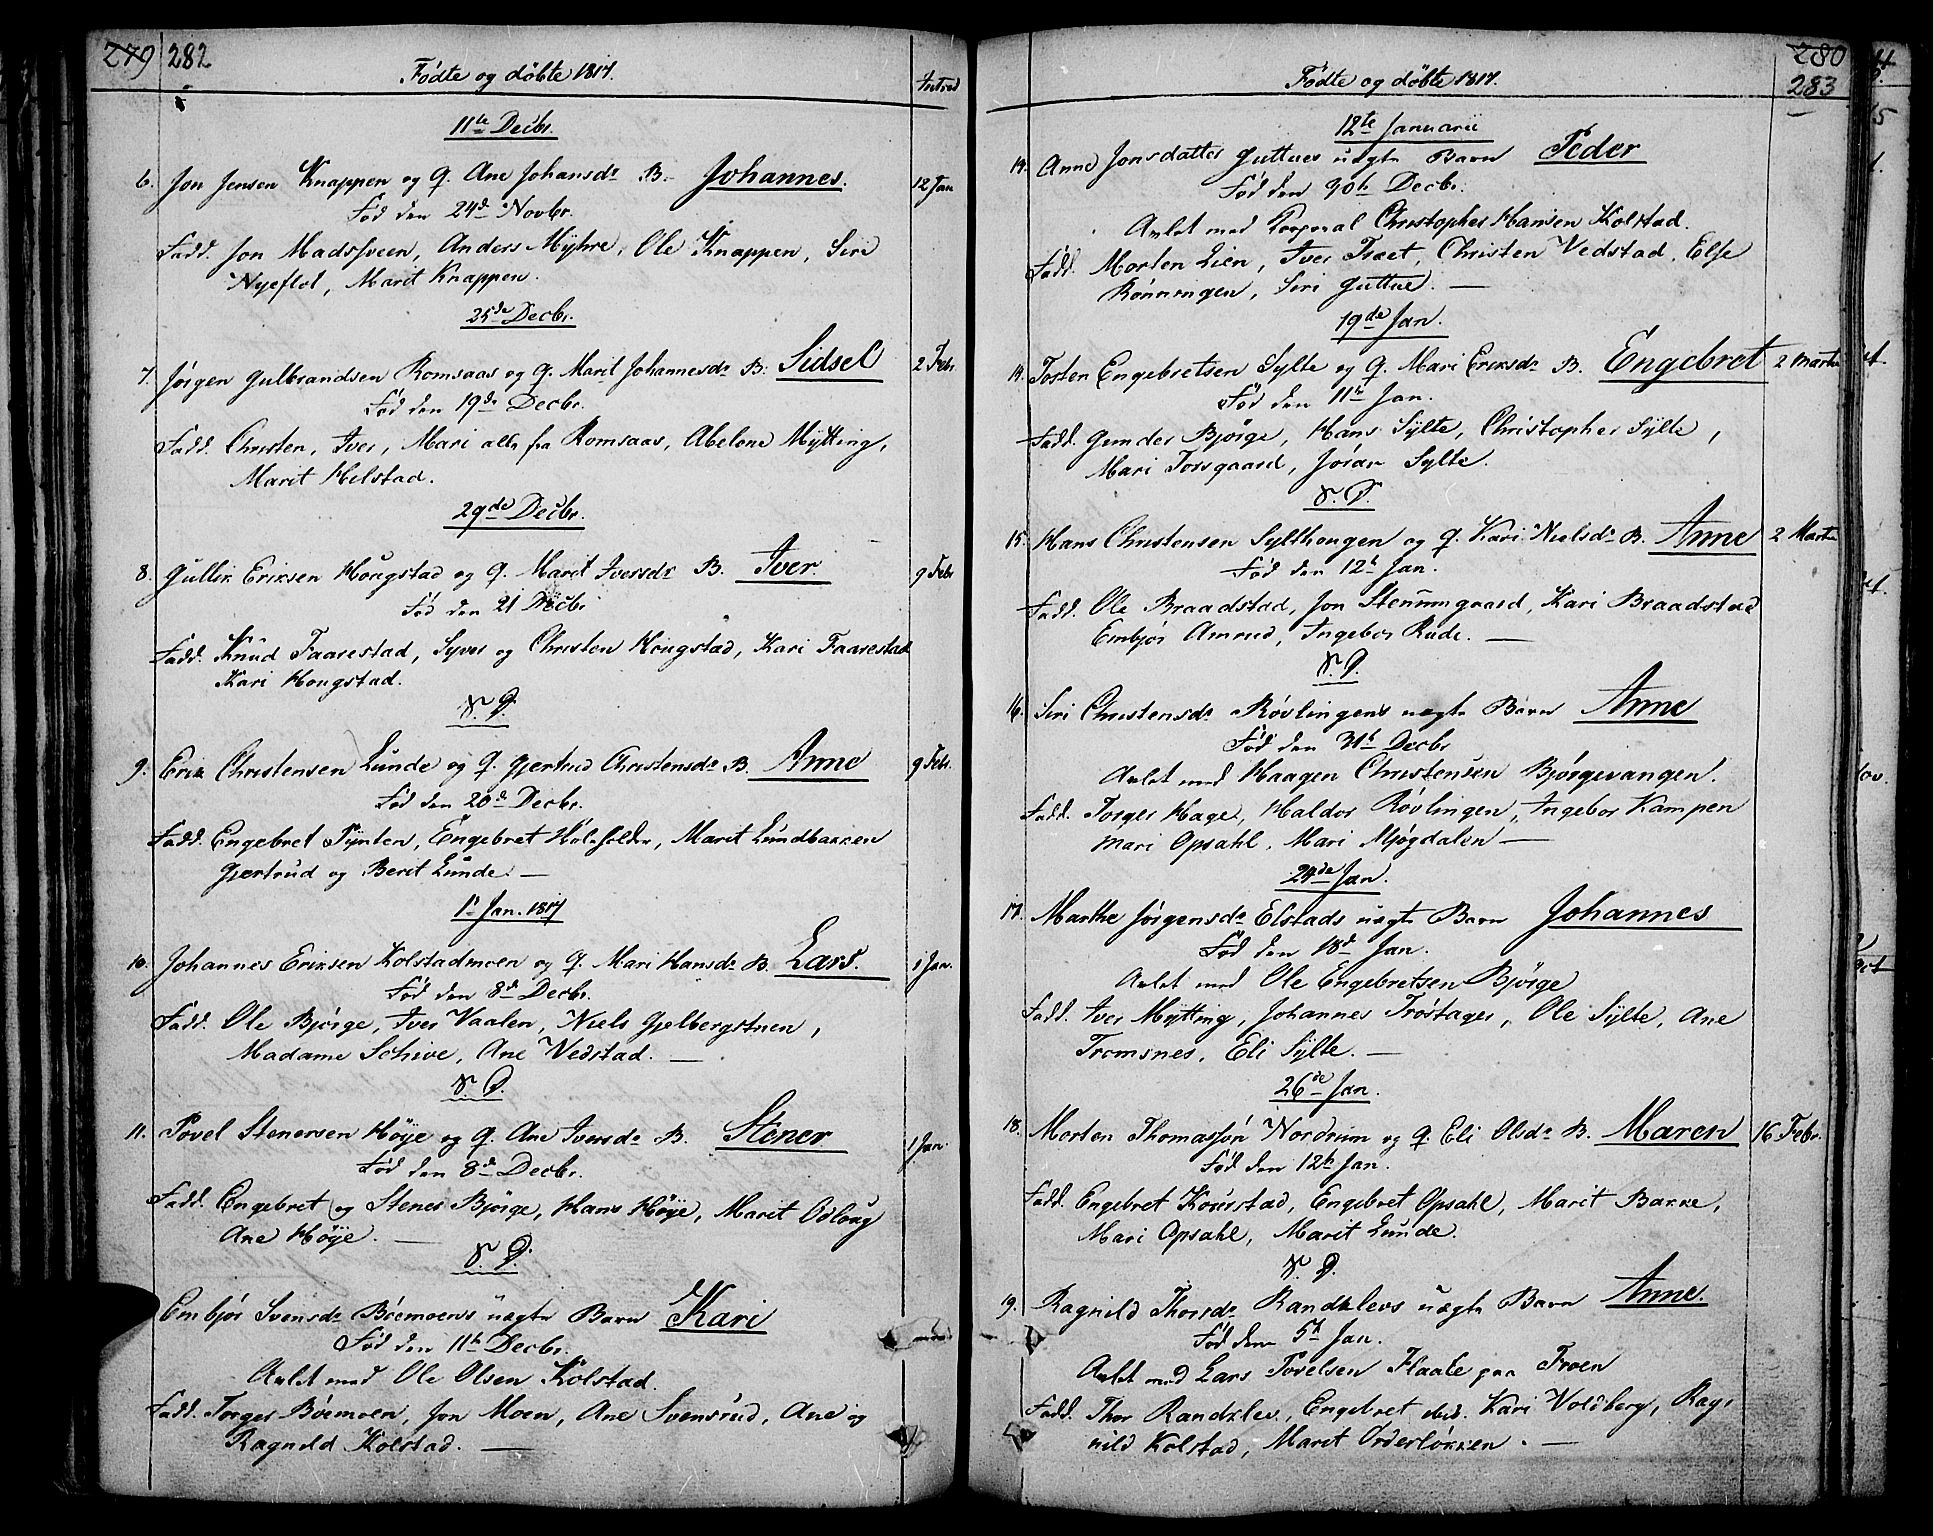 279 282
Fødte og døbte 1817.
Introd
11te Decbr.
6. Jon Jensen Knappen og Q. Ane Johansdr B. Johannes. 12 Jan
Fød den 24d Novbr.
Fadd. Jon Madssveen, Anders Myhre, Ole Knappen, Siri
Nyeflot, Marit Knappen.
25de Decbr.
7. Jørgen Gulbrandsen Romsaas og Q. Marit Johannesdr B. Sidsel 2 Febr
Fød den 19de Decbr.
Fadd. Christen, Iver, Mari alle fra Romsaas, Abelone Mytting,
Marit Helstad.
29de Decbr.
8. Gullik Eriksen Hougstad og Q. Marit Iversdr B. Iver. 9 Febr
Fød den 21 Decbr
Fadd. Knud Faarestad, Syver og Christen Hougstad, Kari Faarestad
Kari Hougstad.
S. D.
9. Erik Christensen Lunde og Q. Gjertrud Christensdr B. Anne 9 Febr.
Fød den 20d Decbr.
Fadd. Engebret Pynten, Engebret, Marit Lundbakken
Gjertrud og Berit Lunde. —
1t Jan. 1817
10. Johannes Eriksen Kolstadmoen og Q. Mari Hansdr B. Lars. 1 Jan.
Fød den 8d Decbr.
Fadd. Ole Bjørge, Iver Vaalen, Niels Gjelbergstuen,
Madame Schive, Ane Vedstad. —
S. D.
11. Povel Stenersen Høye og Q. Ane Iversdr B. Stener 1 Jan
Fød den 8d Decbr.
Fadd. Engebret og Stener Bjørge, Hans Høye, Marit Odloug
Ane Høye. —
S. D.
Embjør Svensdr Bøemoens uægte Barn Kari
Fød den 11te Decbr.
Avlet med Ole Olsen Kolstad.
Fadd. Torger Bøemoen, Jon Moen, Ane Svensrud, Ane og
Ragnild Kolstad. —
280
283
Fødte og døbte 1817.
12te Januarii
Anne Jonsdatter Guttues uægte Barn Peder
Fød den Decbr.
Avlet med Corporal Christopher Hansen Kolstad.
Fadd. Morten Lien, Iver Træet, Christen Vedstad, Else
Rønningen, Siri Guttue. —
19de Jan.
14. Tosten Engebretsen Sylte og Q. Mari Eriksdr B. Engebret 2 Marts
Fød den 11te Jan.
Fadd. Gunder Bjørge, Hans Sylte, Christopher Sylte,
Mari Torsgaard, Joran Sylte.
S. D.
15. Hans Christensen Sylthougen og Q. Kari Nielsdr B. Anne 2 Marts
Fød den 12te Jan.
Fadd. Ole Braadstad, Jon Stenumgaard, Kari Braadstad
Embjør Amrud, Ingebor Rude. —
S. D.
16. Siri Christensdr Røvlingens uægte Barn Anne
Fød den 31te Decbr
Avlet med Haagen Christensen Bjørgevangen.
Fadd. Torger Hage, Haldor Røvlingen, Ingebor Kampen
Mari Opsahl, Mari Mjøgdalen —
24de Jan.
17. Marthe Jørgensdr Elstads uægte Barn Johannes
Fød den 18d Jan.
Avlet med Ole Engebretsen Bjørge
Fadd. Iver Mytting, Johannes Trøstager, Ole Sylte, Ane
Tromsnes, Eli Sylte. —
26de Jan.
18. Morten Thomassøn Nordrum og Q. Eli Olsdr B. Maren 16 Febr.
Fød den 12te Jan.
Fadd. Engebret Kourstad, Engebret Opsahl, Marit Bakke,
Mari Opsahl, Marit Lunde.
S. D.
19. Ragnild Thorsdr Randklevs uægte Barn Anne.
Fød den 5te Jan.
Avlet med Lars Povelsen Flaate paa Troen
Fadd. Thor Randklev, Engebret ibid. Kari Voldberg, Rag-
nild Kolstad, Marit Orderløkken. —